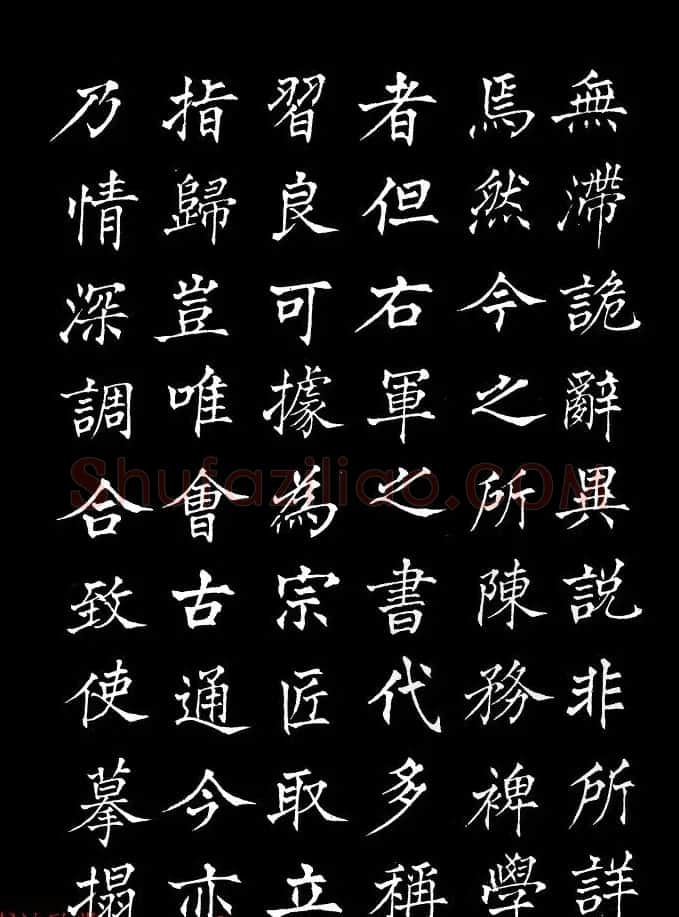 無滯詭辭異說非所詳
焉然今之所陳務裨學
者但右軍之書代多稱
習良可據為宗匠取立
指歸豈唯會古通今亦
乃情深調合致使摹搨
Shufaziliao.COM